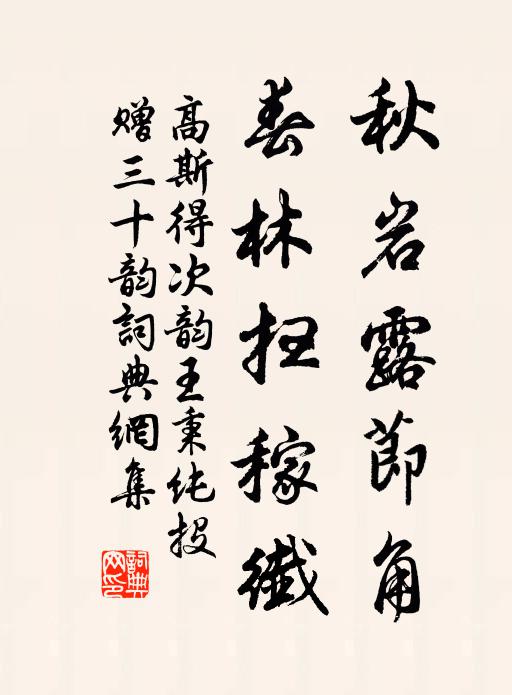 秋岩露節角
春林扫稼纖
高斯得次韵王秉纯投
赠三十韵詞典網集
詞典网印